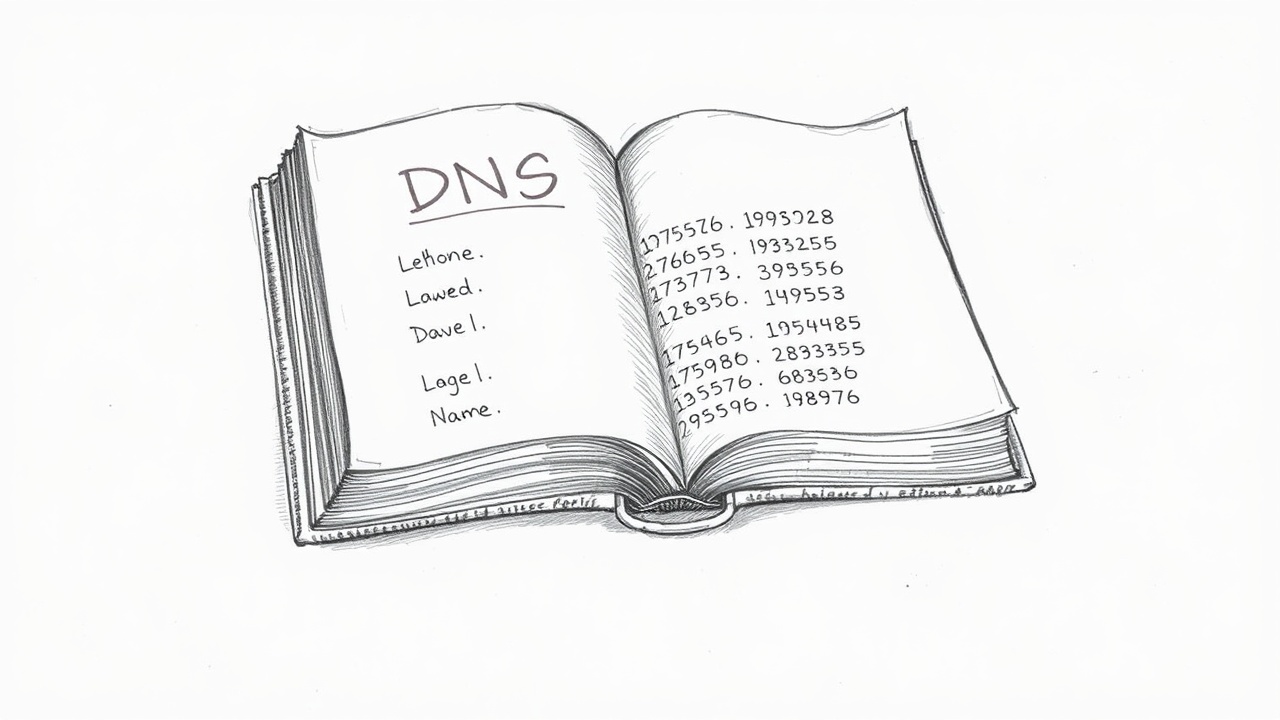 DNS
Lethone.
Lawed.
Davel.
Lagel.
Name.
1075576. 1993028
276655. 1933255
173773. 393556
128356. 149553
175465. 1054485
175986. 2833355
135576. 683536
295596. 198976